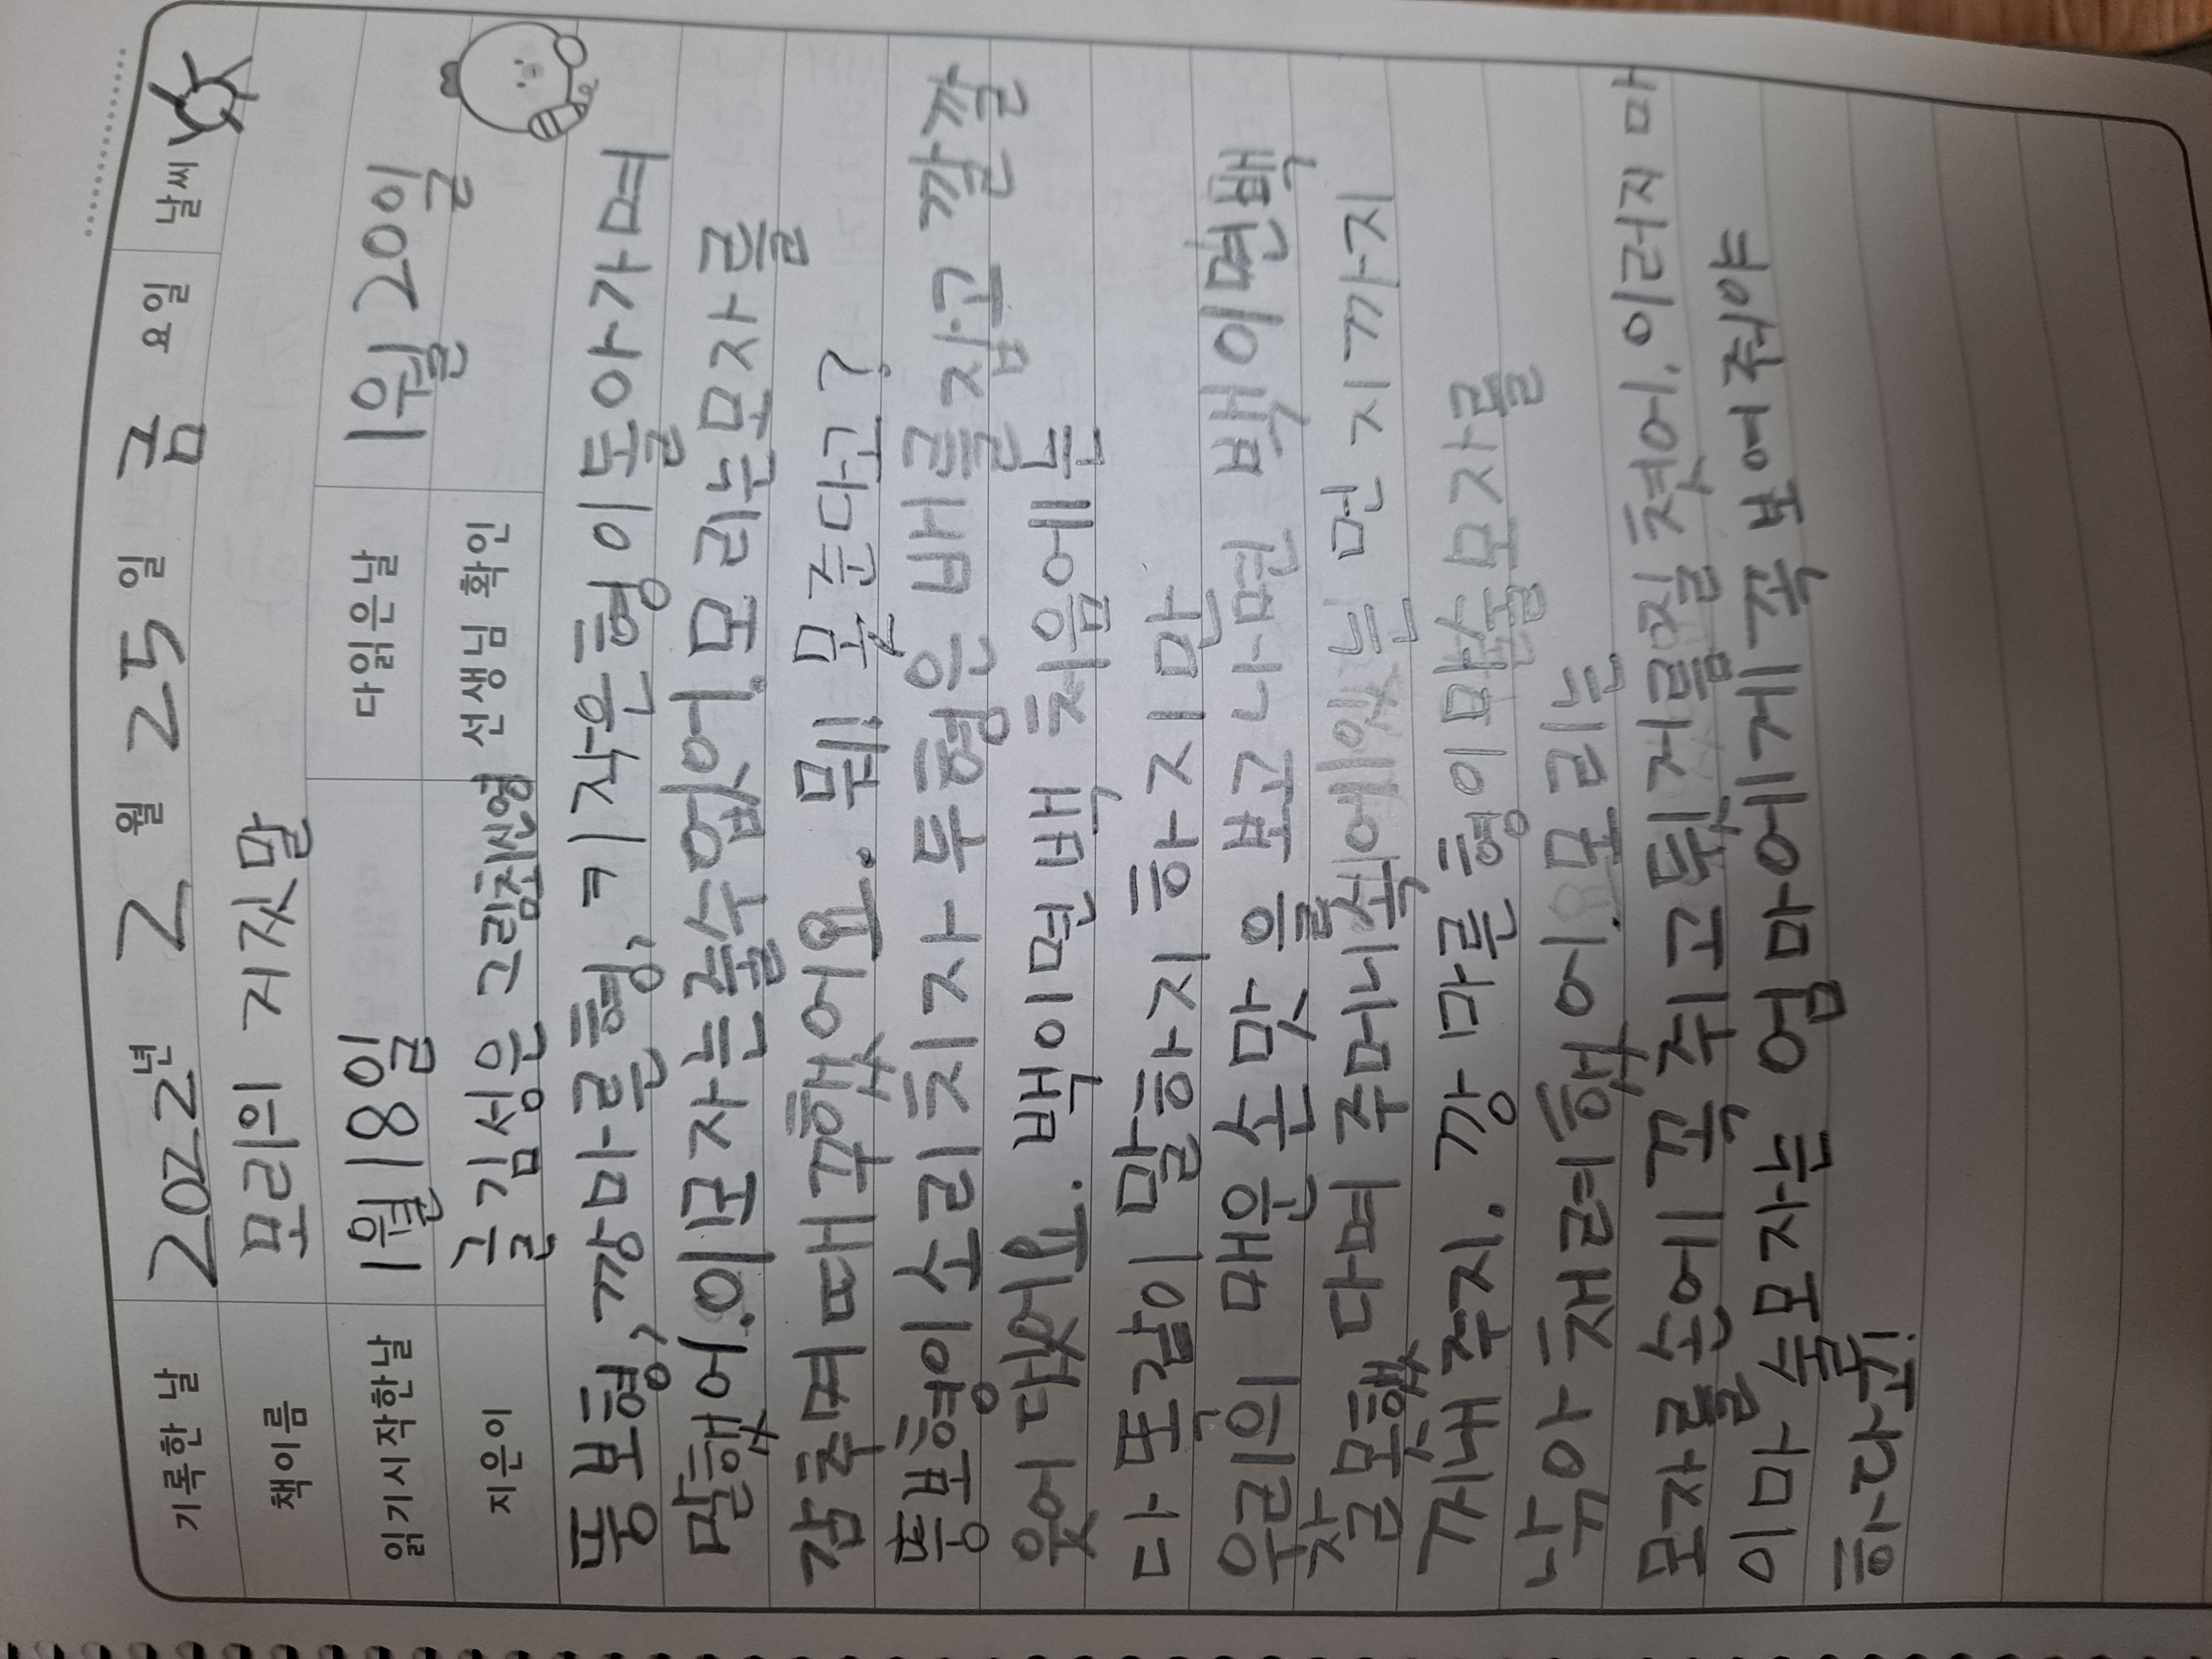 기록한 날 2022년 2월 25일 금요일 날씨
책이름 모리의 거짓말
읽기시작한날 1월 18일 다읽은날 1월 20일
지은이 글 김성은 그림최신영 선생님 확인
뚱보형, 깡마른형, 키작은형이돌아가며
말했어.이모자는줄수없어.모리는모자를
감추며 때꾸했어요. 뭐! 못준다고?
뚱보형이소리치자 두형은 배를잡고 깔깔
웃어 댔어요. 백이면백 처음에는
다 똑같이 말하지 하지만
우리의 매운손맛을 보고나면 백이면백
잘못했다며 주머니속에있는 먼지까지
꺼내주지. 깡마른형이마술모자를
낚아 채려했어. 모리는
모자를손에 꼭쥐고뒷거름질쳤어. 이러지마
이마술모자는 엄마에게꼭보여줘야
하다고!